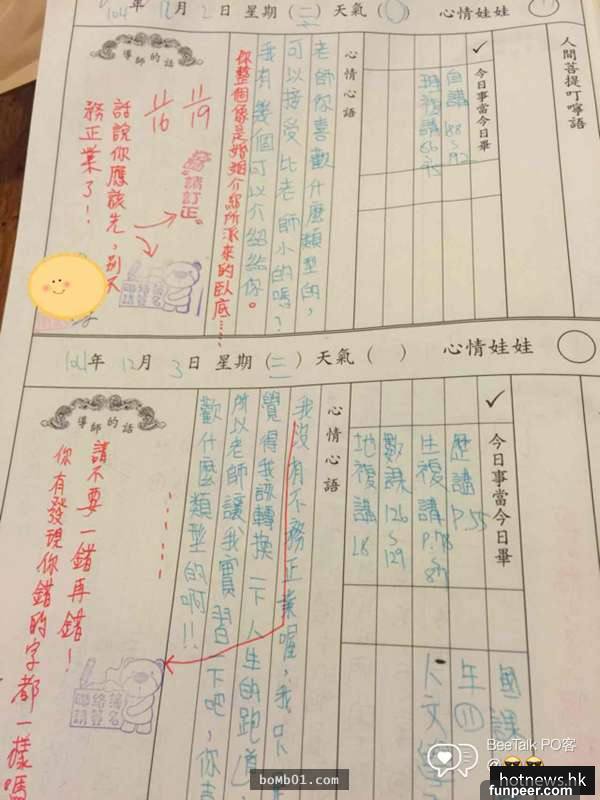 年 12月 2日 星期(二) 天氣( ) 心情娃娃
人間菩提叮嚀語
✓ 今日事當今日畢
自講 88~92
心情心語
老師你喜歡什麼類型的,
可以接受比老師小的嗎?
我有幾個可以介紹給你
你整個像是婚姻介紹所派來的臥底……
導師的話
11/19
11/16
請訂正
話說你應該先,別不
務正業了!
聯絡簿
請簽名
年 12月 3日 星期(三) 天氣( ) 心情娃娃
✓ 今日事當今日畢
歷講 P.55
生複講 P.78~87
數課 126~129
地複講 L8
國課
生(11)
人文
心情心語
我沒有不務正業喔,我只
覺得我該轉換一下人生的跑道
所以老師讓我實習一下吧,你喜
歡什麼類型的啊!!
導師的話
請不要一錯再錯!
你有發現你錯的字都一樣嗎
聯絡簿
請簽名
BeeTalk PO客
@
boMb01.com
hotnews.hk
funpeer.com